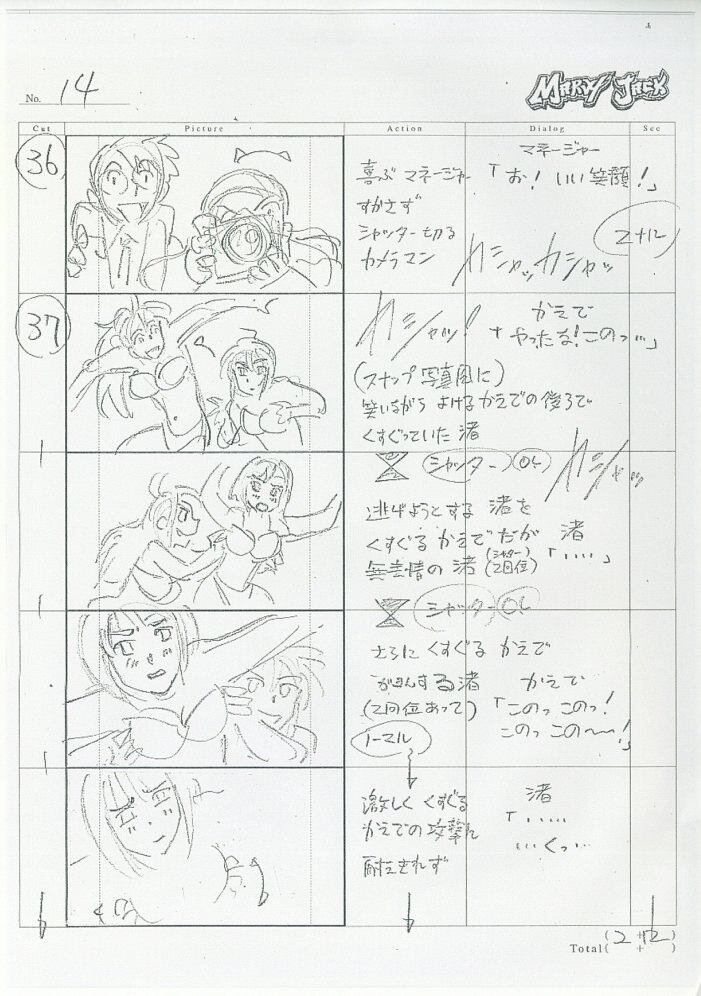 No. 14
MARVY JACK
Cut Picture Action Dialog Sec
36
喜ぶ マネージャー
すかさず
シャッター切る
カメラマン
マネージャー
「お！いい笑顔！」
カシャッカシャッ
2+12
37
カシャッ！
(スナップ写真風に)
笑いながら よける かえでの後ろで
くすぐっていた 渚
かえで
「やったな！このっ…」
シャッター OL
カシャッ
逃げようとする 渚を
くすぐる かえでだが
無表情の 渚 (シャッター2回位)
渚
「‥‥」
シャッター OL
さらに くすぐる かえで
がまんする 渚
(2回位あって)
ノーマル
かえで
「このっ このっ！
このっ この〜〜！」
激しく くすぐる
かえでの攻撃に
耐えきれず
渚
「‥‥
‥‥くっ‥
Total ( 2 + 12 )
( + )